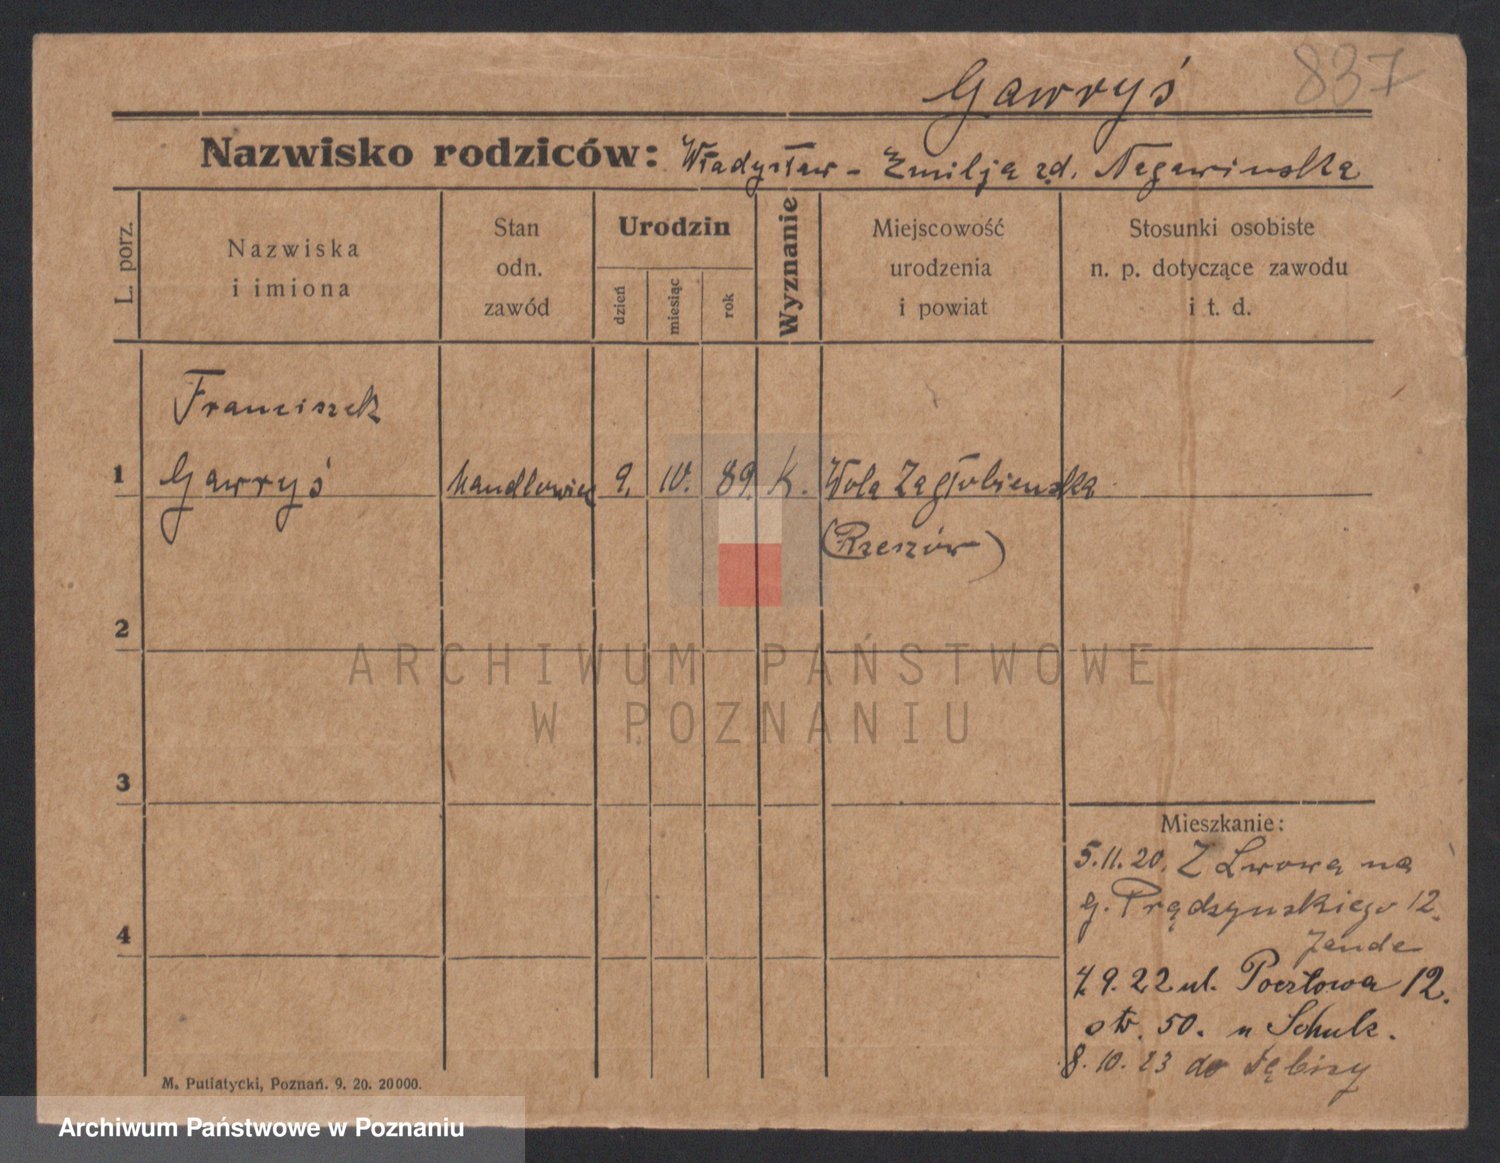 Gawryś 837
Nazwisko rodziców: Władysław - Emilja zd. Nagawinska
L. porz.
Nazwiska
i imiona
Stan
odn.
zawód
Urodzin
dzień
miesiąc
rok
Wyznanie
Miejscowość
urodzenia
i powiat
Stosunki osobiste
n. p. dotyczące zawodu
i t. d.
Franciszek
1 Gawryś handlowiec 9. 10. 89. K. Wola Zagłobieńska
(Rzeszów)
2
ARCHIWUM PAŃSTWOWE
W POZNANIU
3
Mieszkanie:
5.11.20. Z Lwowa na
g. Prądzynskiego 12.
4
4.9.22 ul. Pocztowa 12.
otr. 50. u Schulz.
8.10.23 do
M. Putiatycki, Poznań. 9. 20. 20000.
Archiwum Państwowe w Poznaniu